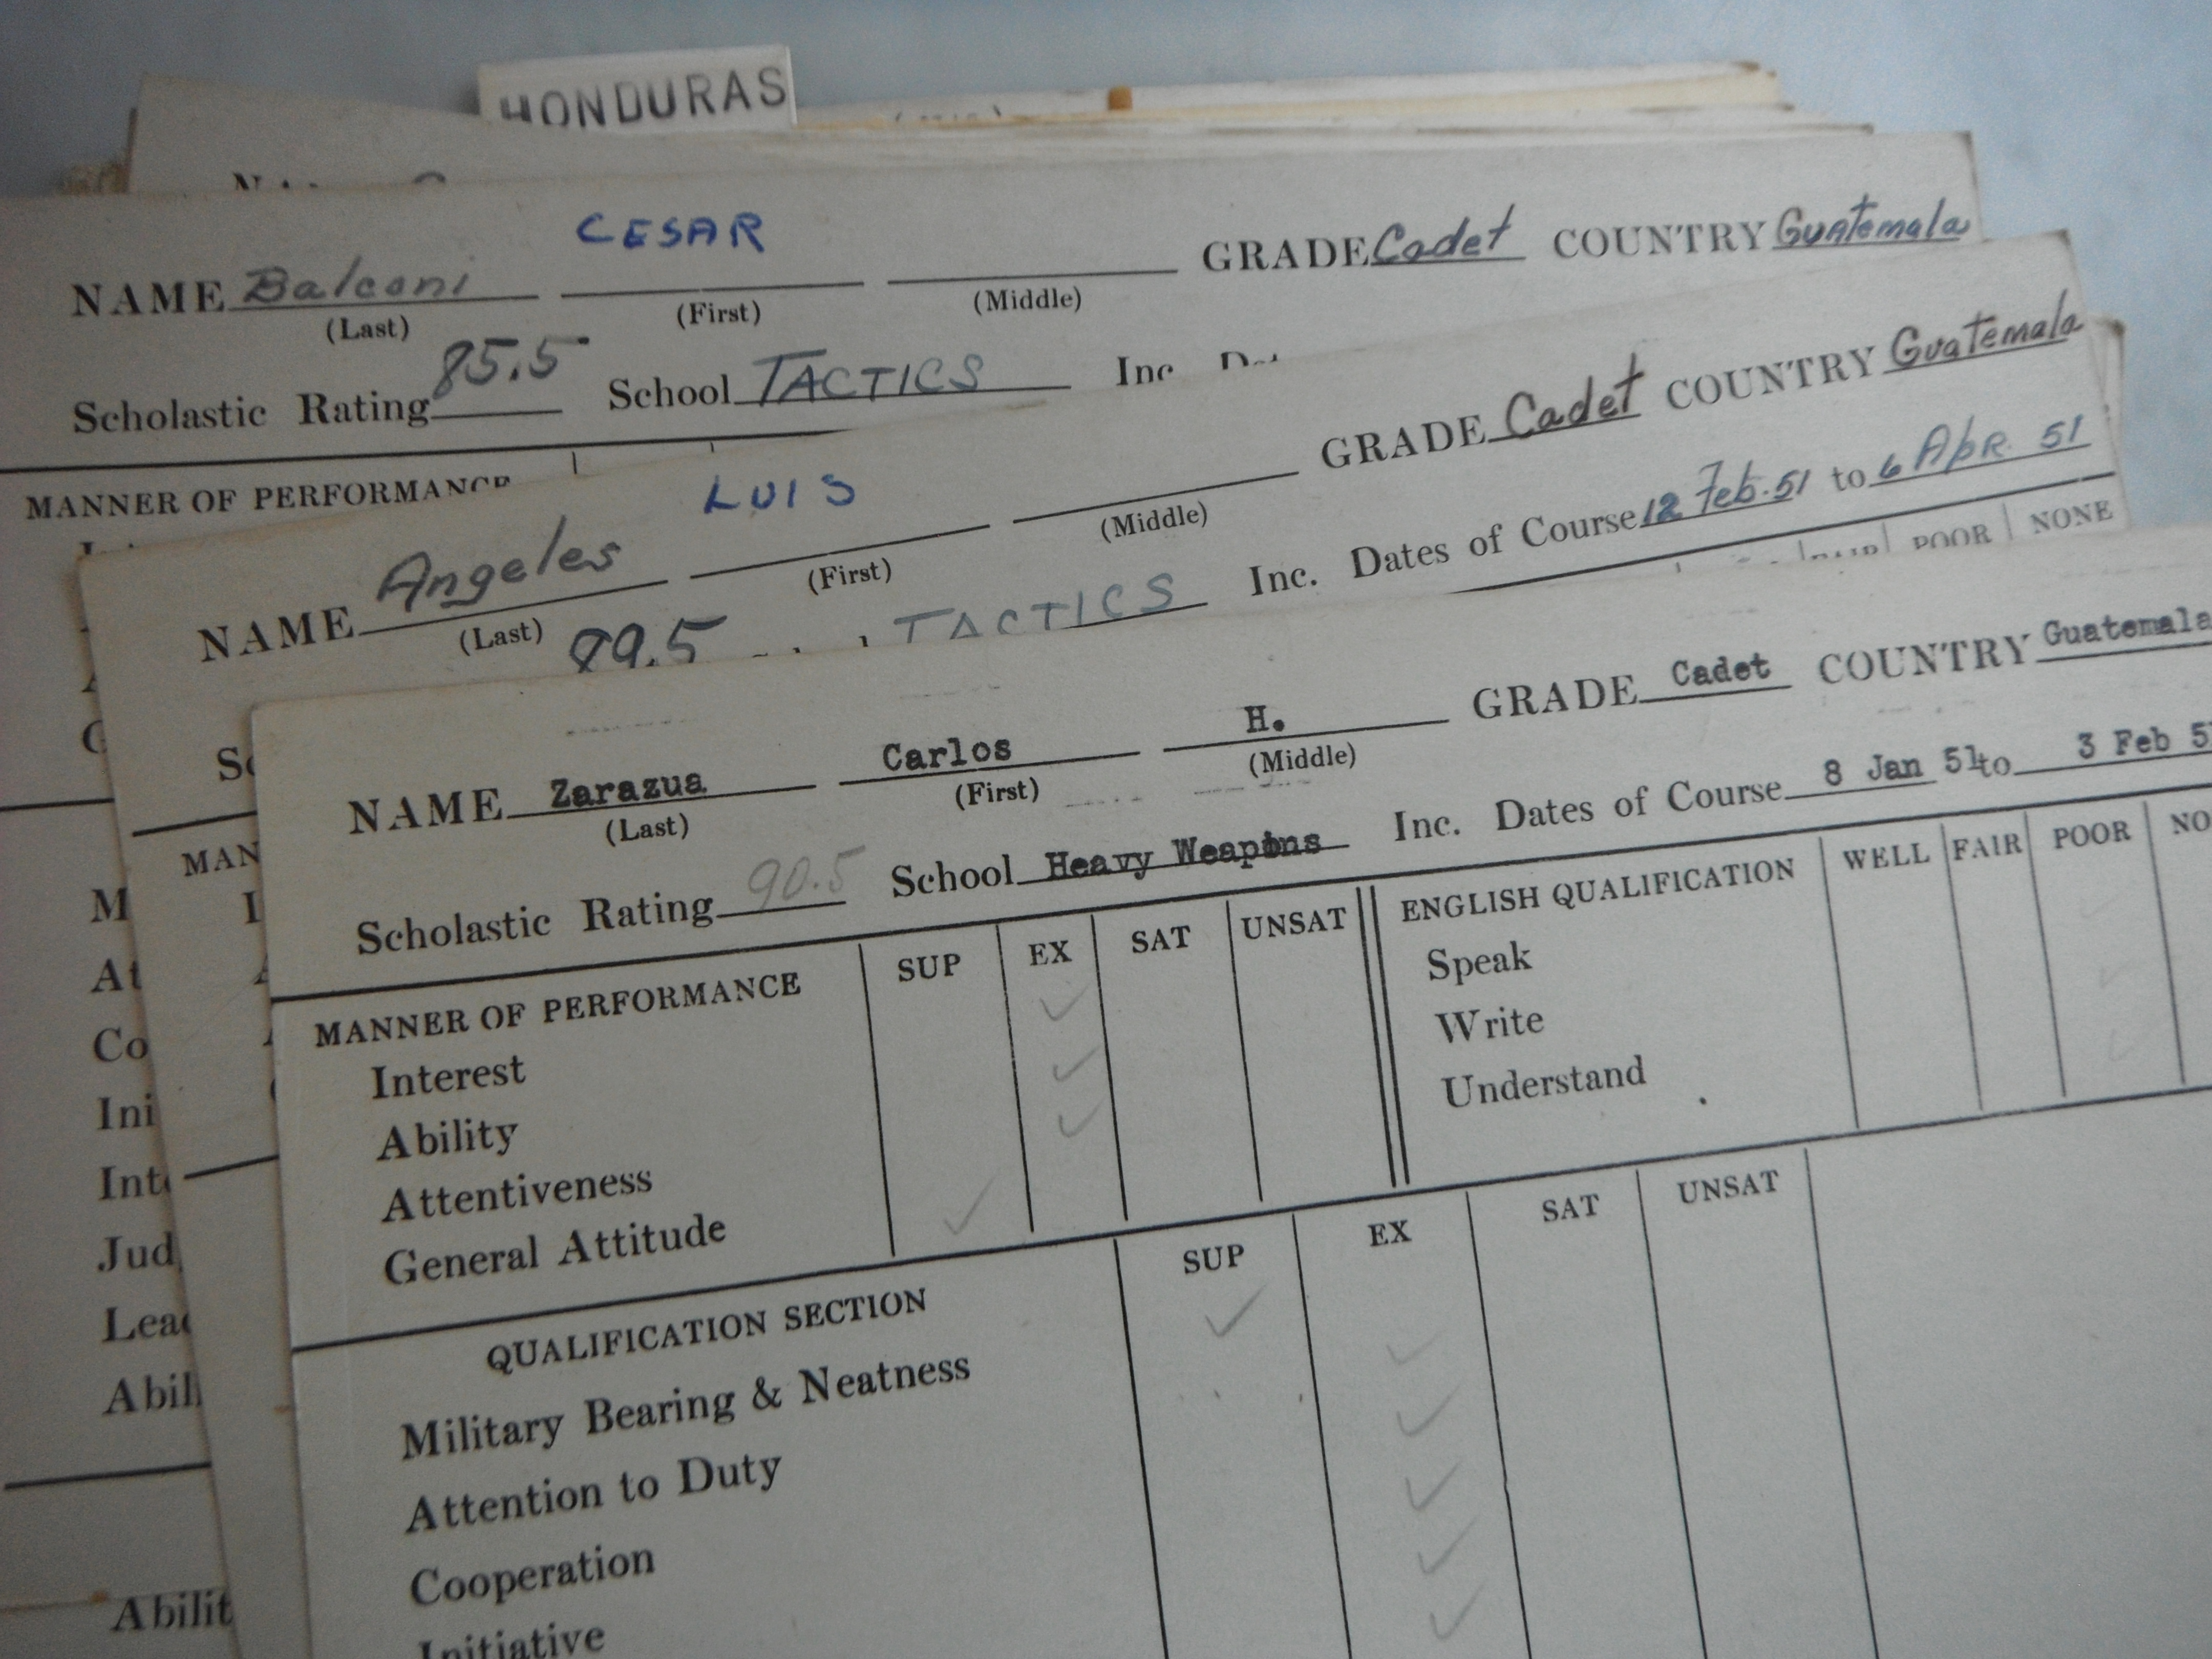 HONDURAS
CESAR
NAME Balconi GRADE Cadet COUNTRY Guatemala
(Last) (First) (Middle)
Scholastic Rating 85.5 School TACTICS Inc
MANNER OF PERFORMANCE
LUIS
NAME Angeles GRADE Cadet COUNTRY Guatemala
(Last) (First) (Middle)
89.5 TACTICS Inc. Dates of Course 12 Feb. 51 to 6 Apr. 51
FAIR POOR NONE
NAME Zarazua Carlos H. GRADE Cadet COUNTRY Guatemala
(Last) (First) (Middle)
Scholastic Rating 90.5 School Heavy Weapons Inc. Dates of Course 8 Jan 51 to 3 Feb 5
MANNER OF PERFORMANCE SUP EX SAT UNSAT
Interest
Ability
Attentiveness
General Attitude
ENGLISH QUALIFICATION WELL FAIR POOR NO
Speak
Write
Understand
QUALIFICATION SECTION SUP EX SAT UNSAT
Military Bearing & Neatness
Attention to Duty
Cooperation
Initiative
MAN
M
At
Co
Ini
Int
Jud
Lea
Abil
Abilit